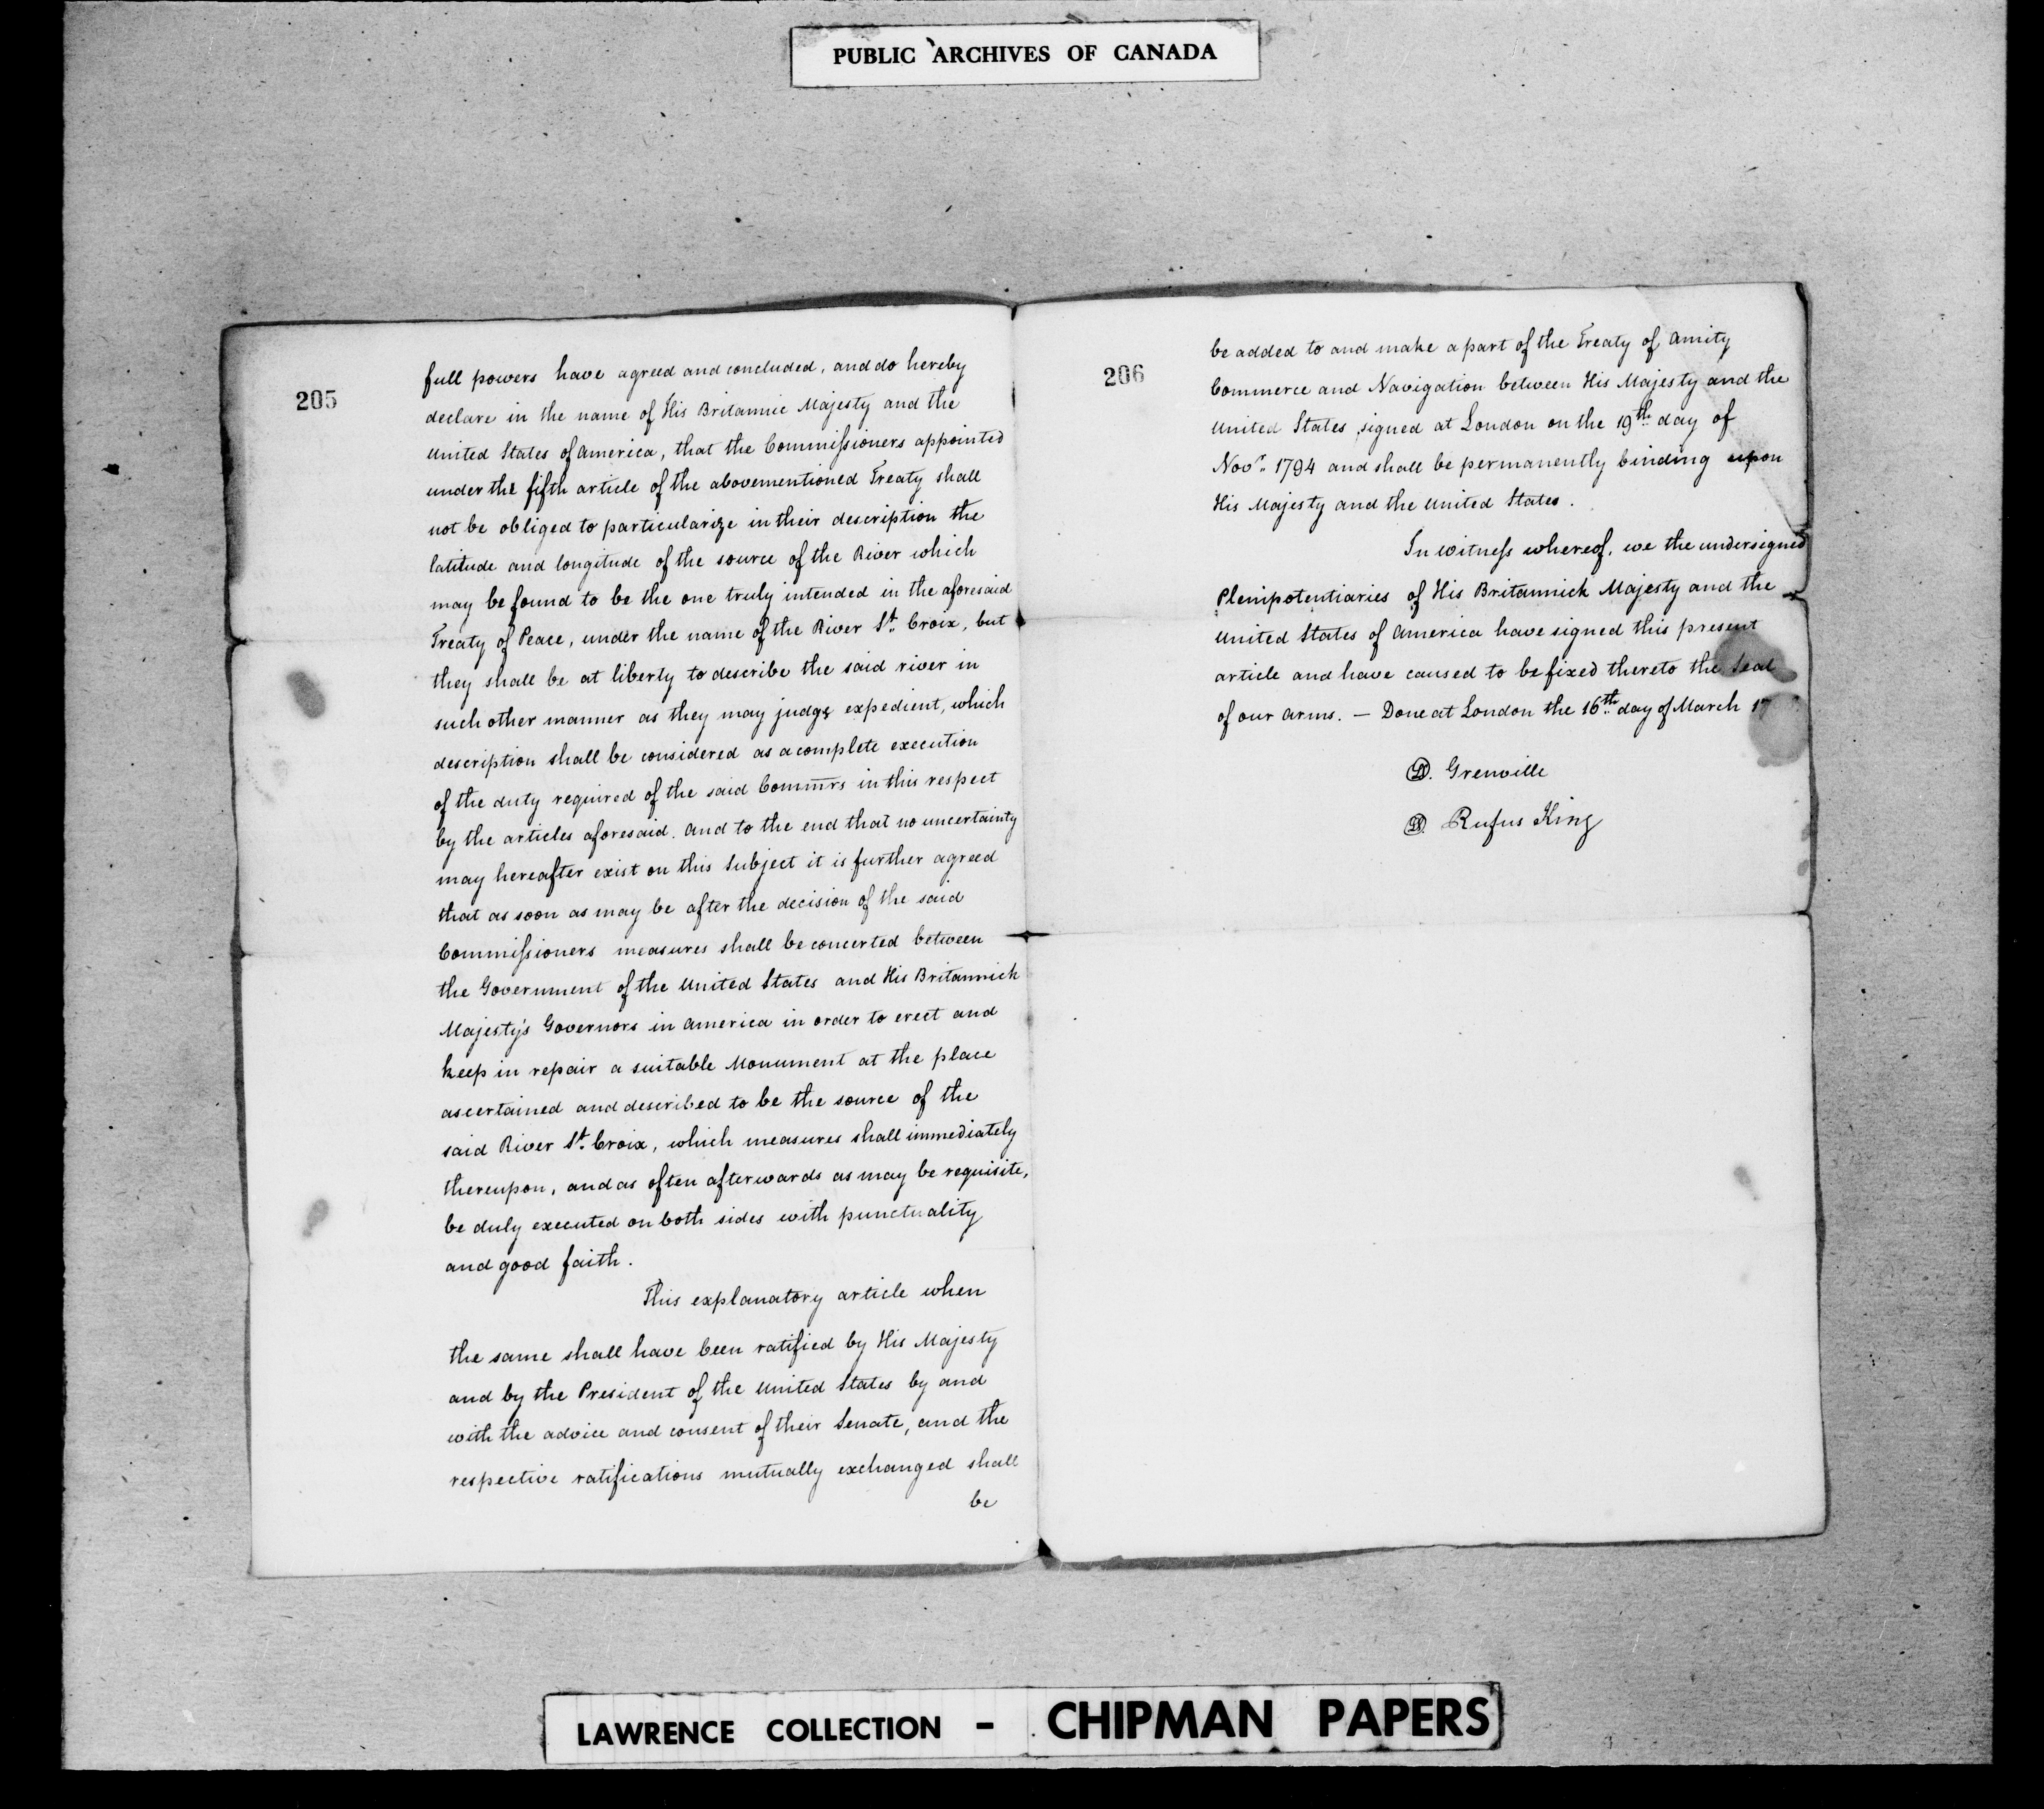 PUBLIC ARCHIVES OF CANADA
205
full powers have agreed and concluded, and do hereby
declare in the name of His Britannic Majesty and the
United States of America, that the Commissioners appointed
under the fifth article of the abovementioned Treaty shall
not be obliged to particularize in their description the
latitude and longitude of the source of the River which
may be found to be the one truly intended in the aforesaid
Treaty of Peace, under the name of the River St. Croix, but
they shall be at liberty to describe the said river in
such other manner as they may judge expedient, which
description shall be considered as a complete execution
of the duty required of the said Commrs in this respect
by the articles aforesaid. And to the end that no uncertainty
may hereafter exist on this Subject it is further agreed
that as soon as may be after the decision of the said
Commissioners measures shall be concerted between
the Government of the United States and His Britannick
Majesty's Governors in America in order to erect and
keep in repair a suitable Monument at the place
ascertained and described to be the source of the
said River St. Croix, which measures shall immediately
thereupon, and as often afterwards as may be requisite,
be duly executed on both sides with punctuality
and good faith.
This explanatory article when
the same shall have been ratified by His Majesty
and by the President of the United States by and
with the advice and consent of their Senate, and the
respective ratifications mutually exchanged shall
be
206
be added to and make a part of the Treaty of Amity
Commerce and Navigation between His Majesty and the
United States signed at London on the 19th day of
Novr. 1794 and shall be permanently binding upon
His Majesty and the United States.
In Witness whereof, we the undersigned
Plenipotentiaries of His Britannick Majesty and the
United States of America have signed this present
article and have caused to be fixed thereto the Seal
of our Arms. — Done at London the 16th day of March 17
Grenville
Rufus King
LAWRENCE COLLECTION - CHIPMAN PAPERS